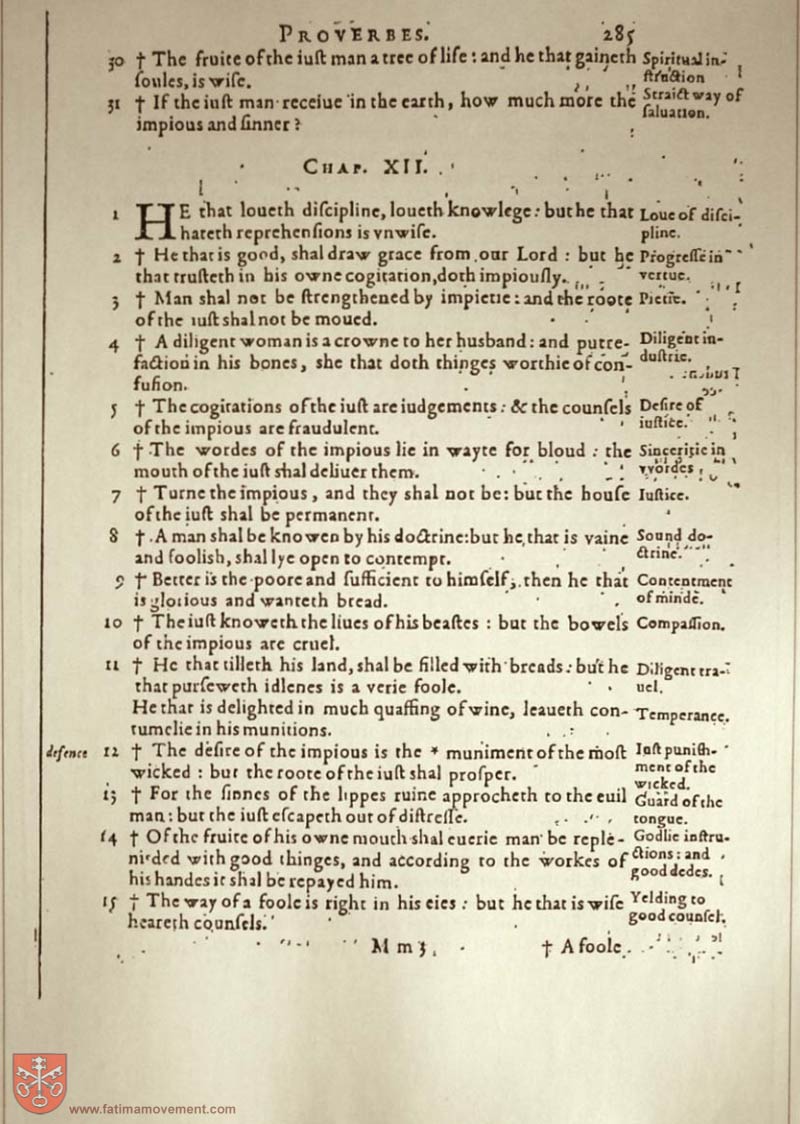 PROVERBES. 285
30 † The fruite of the iuſt man a tree of life : and he that gaineth
ſoules, is wiſe.
Spiritual in-
ſtruction
31 † If the iuſt man receiue in the earth, how much more the
impious and ſinner?
Straict way of
ſaluation.
CHAP. XII.
1 HE that loueth diſcipline, loueth knowlege: but he that
hateth reprehenſions is vnwiſe.
Loue of diſci-
pline.
2 † He that is good, shal draw grace from our Lord : but he
that truſteth in his owne cogitation, doth impiouſly.
Progreſſe in
vertue.
3 † Man shal not be ſtrengthened by impietie : and the roote
of the iuſt shal not be moued.
Pietie.
4 † A diligent woman is a crowne to her husband : and putre-
faction in his bones, she that doth thinges worthie of con-
fuſion.
Diligent in-
duſtrie.
5 † The cogitations of the iuſt are iudgements : & the counſels
of the impious are fraudulent.
Deſire of
iuſtice.
6 † The wordes of the impious lie in wayte for bloud : the
mouth of the iuſt shal deliuer them.
Sinceritie in
wordes,
7 † Turne the impious, and they shal not be: but the houſe
of the iuſt shal be permanent.
Iuſtice.
8 † A man shal be knowen by his doctrine: but he that is vaine
and foolish, shal lye open to contempt.
Sound do-
ctrine.
9 † Better is the poore and ſufficient to himſelf, then he that
is glorious and wanteth bread.
Contentment
of minde.
10 † The iuſt knoweth the liues of his beaſtes : but the bowels
of the impious are cruel.
Compaſſion.
11 † He that tilleth his land, shal be filled with breads: but he
that purſeweth idlenes is a verie foole.
Diligent tra-
uel.
He that is delighted in much quaffing of wine, leaueth con-
tumelie in his munitions.
Temperance.
defence 12 † The deſire of the impious is the * muniment of the moſt
wicked : but the roote of the iuſt shal proſper.
Iuſt punish-
ment of the
wicked.
13 † For the ſinnes of the lippes ruine approcheth to the euil
man: but the iuſt eſcapeth out of diſtreſſe.
Guard of the
tongue.
14 † Of the fruite of his owne mouth shal euerie man be reple-
nished with good thinges, and according to the workes of
his handes it shal be repayed him.
Godlie inſtru-
ctions: and
good dedes.
15 † The way of a foole is right in his eies : but he that is wiſe
heareth counſels.
Yelding to
good counſel.
Mm3
† A foole
www.fatimamovement.com